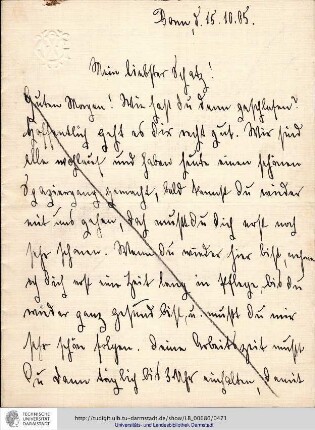 Bonn, d. 15.10.05.
Mein liebster Schatz!
Guten Morgen! Wie hast du denn geschlafen?
Hoffentlich geht es dir recht gut. Wir sind
alle wohlauf und haben heute einen schönen
Spaziergang gemacht, bald kannst du wieder
mit uns gehen, doch mußt du dich erst noch
sehr schonen. Wenn du wieder hier bist, nehme
ich dich erst eine Zeit lang in Pflege, bis du
wieder ganz gesund bist, u. mußt du mir
sehr schön folgen. Deine Arbeitszeit mußt
Du dann täglich bis 3 Uhr einhalten, damit
TECHNISCHE
UNIVERSITÄT
DARMSTADT
http://tudigit.ulb.tu-darmstadt.de/show/LB_00060/0471
Universitäts- und Landesbibliothek Darmstadt